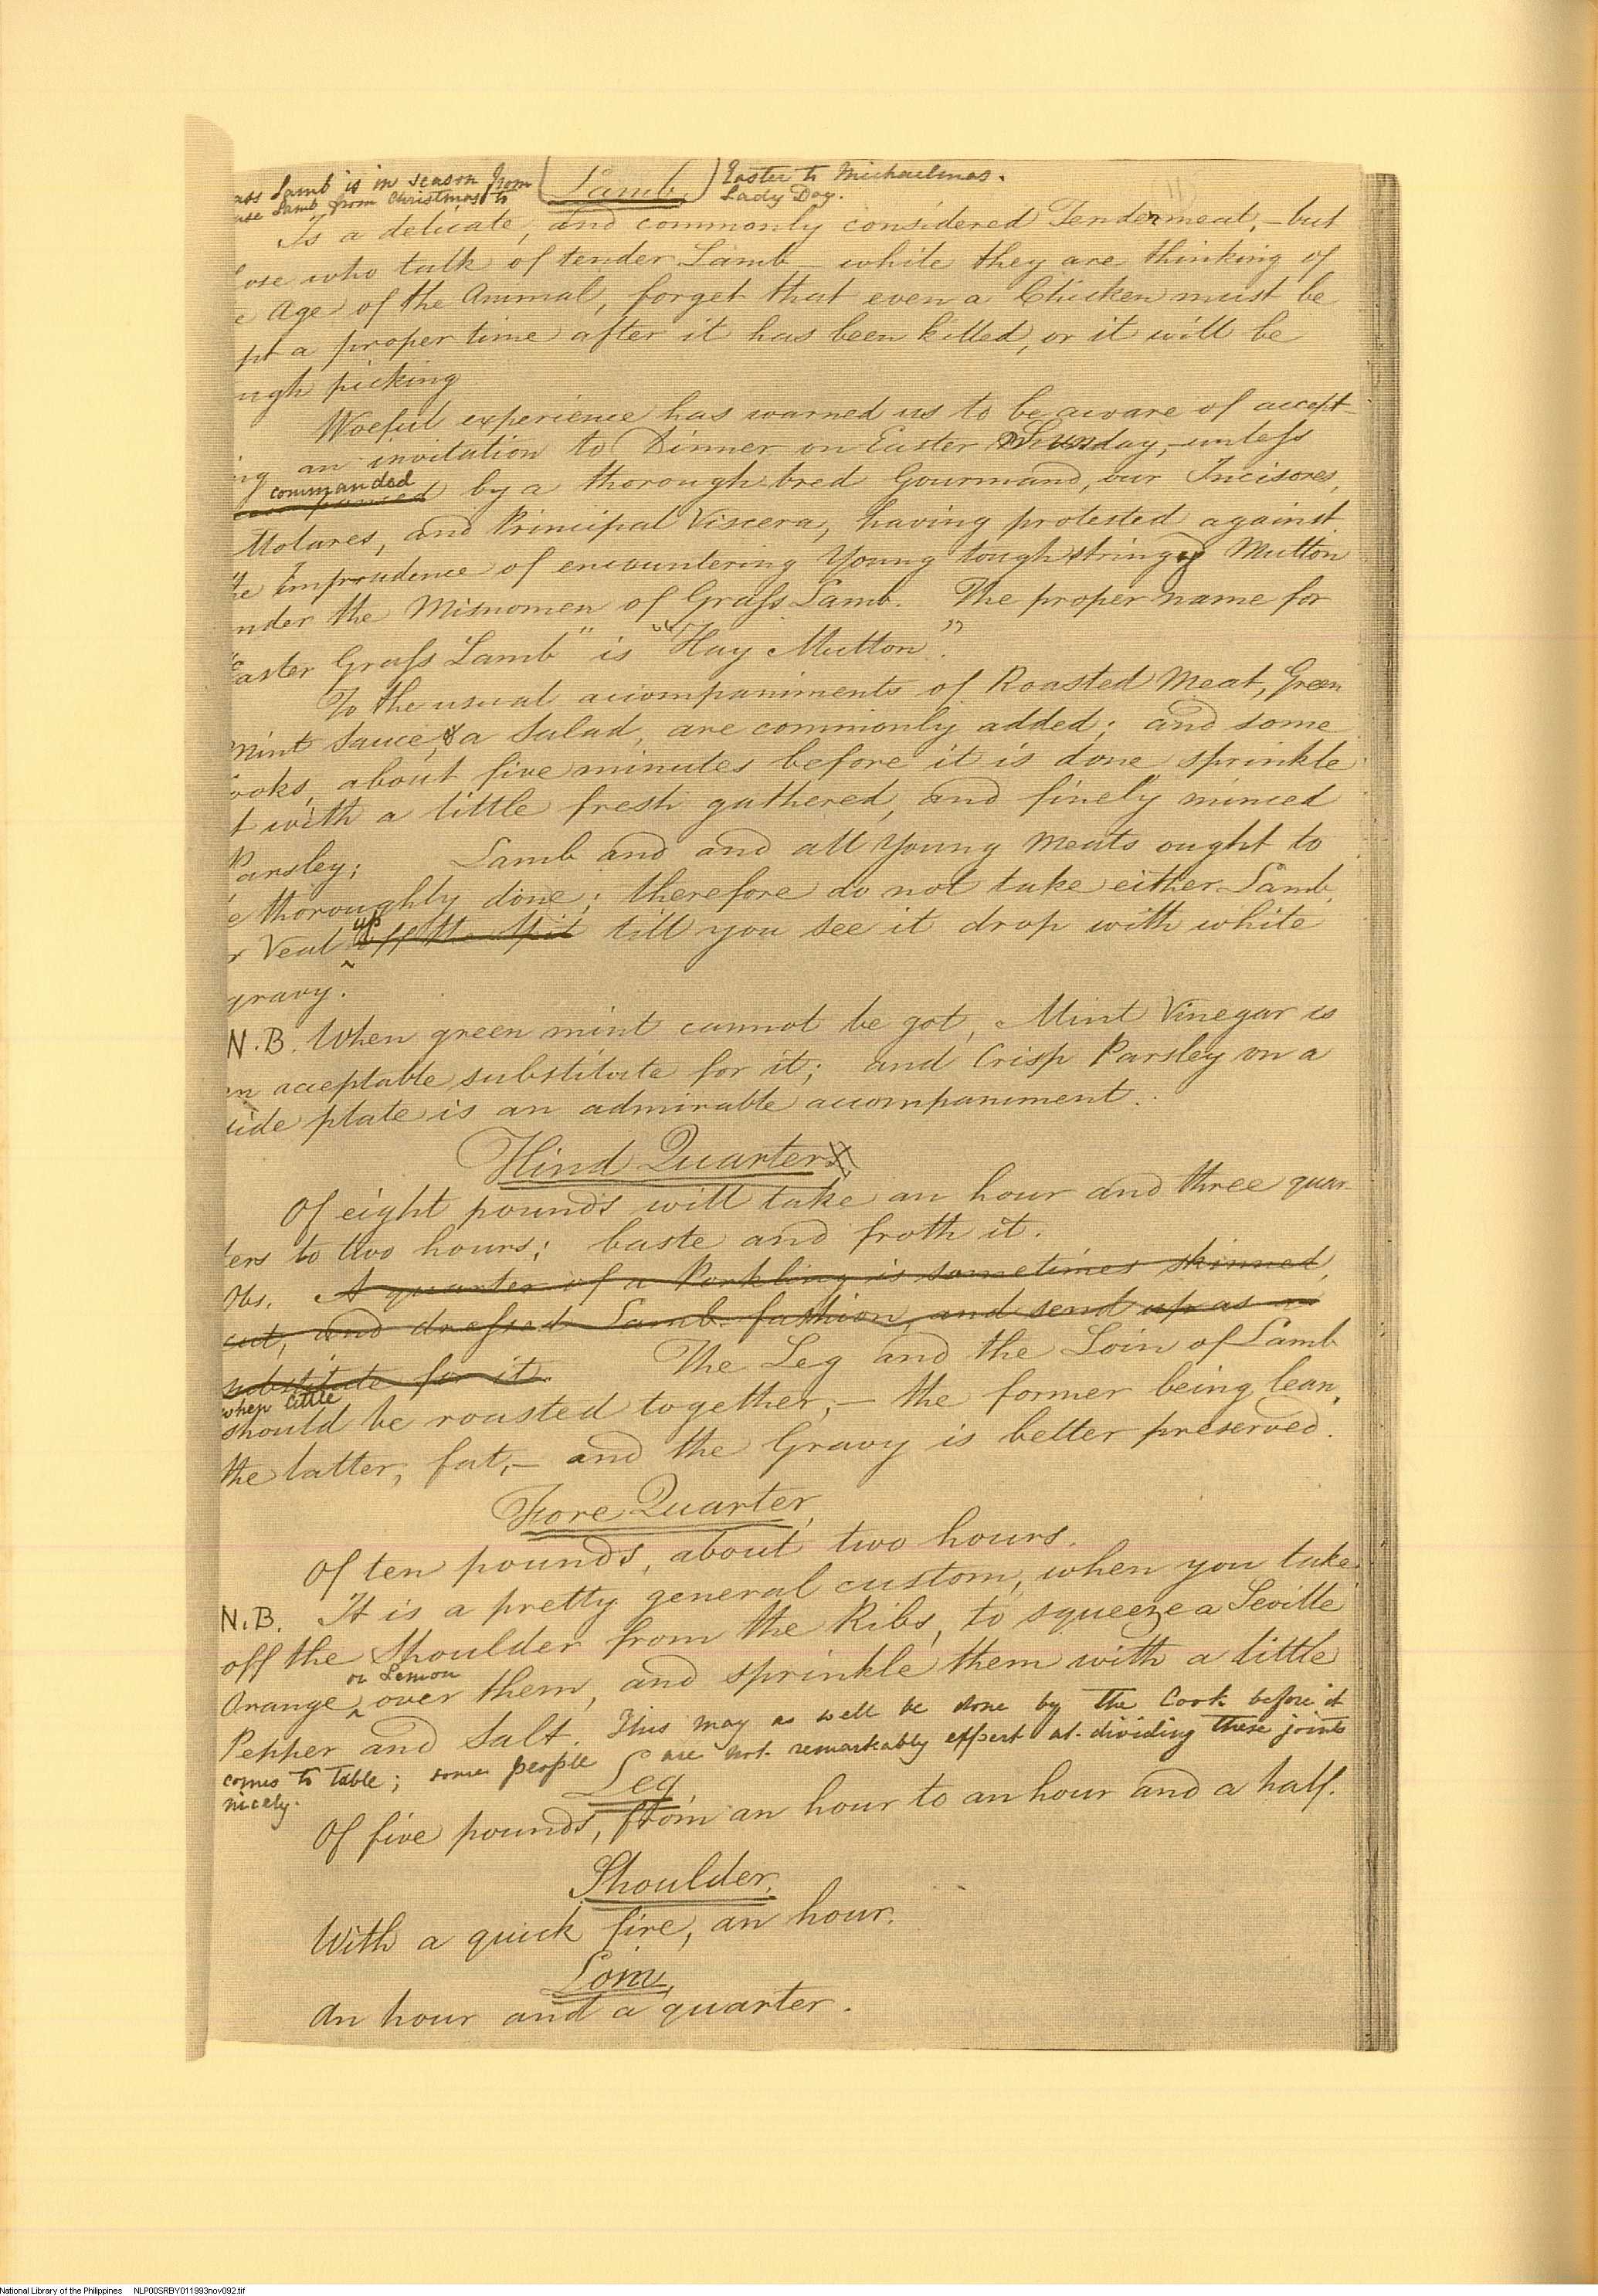 ass Lamb is in season from (Lamb.) Easter to Michaelmas.
use Lamb from Christmas to Lady Day.
Is a delicate, and commonly considered Tender meat, – but
ose who talk of tender Lamb while they are thinking of
e Age of the Animal, forget that even a Chicken must be
pt a proper time after it has been killed, or it will be
ugh picking
Woeful experience has warned us to be aware of accept-
ng an invitation to Dinner on Easter Sunday, – unless
commanded
by a thorough bred Gourmand, our Incisores,
Molares, and Principal Viscera, having protested against
e Imprudence of encountering Young tough stringy Mutton
nder the Misnomen of Grass Lamb. The proper name for
aster Grass Lamb" is "Hay Mutton".
To the usual accompaniments of Roasted Meat, Green
Mint Sauce, & a Salad, are commonly added; and some
ooks, about five minutes before it is done sprinkle
t with a little fresh gathered, and finely minced
Parsley; Lamb and and all Young Meats ought to
e thoroughly done; therefore do not take either Lamb
up
r Veal off the Spit till you see it drop with white
gravy.
N.B. When green mint cannot be got, Mint Vinegar is
n acceptable substitute for it; and Crisp Parsley on a
side plate is an admirable accompaniment.
Hind Quarter
Of eight pounds will take an hour and three quar-
ters to two hours; baste and froth it.
Obs. A quarter of a Porkling is sometimes skinned,
cut, and dressed Lamb fashion, and send up as a
substitute for it. The Leg and the Loin of Lamb
when little
should be roasted together, – the former being lean,
the latter, fat, – and the Gravy is better preserved.
Fore Quarter,
Of ten pounds, about two hours.
N.B. It is a pretty general custom, when you take
off the Shoulder from the Ribs, to squeeze a Seville
or Lemon
Orange over them, and sprinkle them with a little
Pepper and Salt. This may as well be done by the Cook before it
comes to table; some people are not remarkably expert at dividing these joints
nicely.
Leg
Of five pounds, from an hour to an hour and a half.
Shoulder.
With a quick fire, an hour.
Loin,
An hour and a quarter.
National Library of the Philippines NLP00SRBY011993nov092.tif